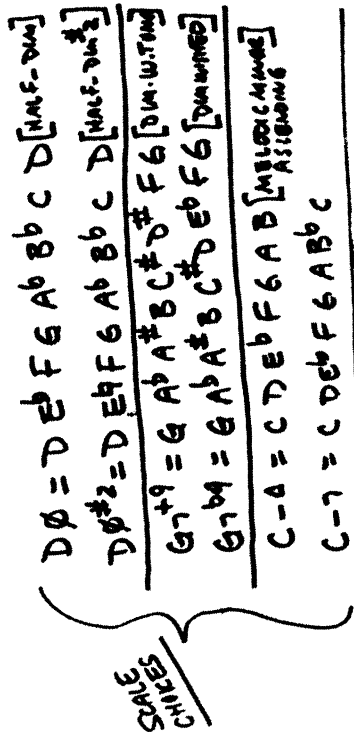 SCALE
CHOICES
DØ = D E♭ F G A♭ B♭ C D [HALF-DIM]
DØ♯2 = D E♮ F G A♭ B♭ C D [HALF-DIM ♯2]
G7+9 = G A♭ A♯ B C♯ D♯ F G [DIM.W.TONE]
G7♭9 = G A♭ A♯ B C♯ D E♭ F G [DIMINISHED]
C-Δ = C D E♭ F G A B [MELODIC MINOR
ASCENDING
C-7 = C D E♭ F G A B♭ C